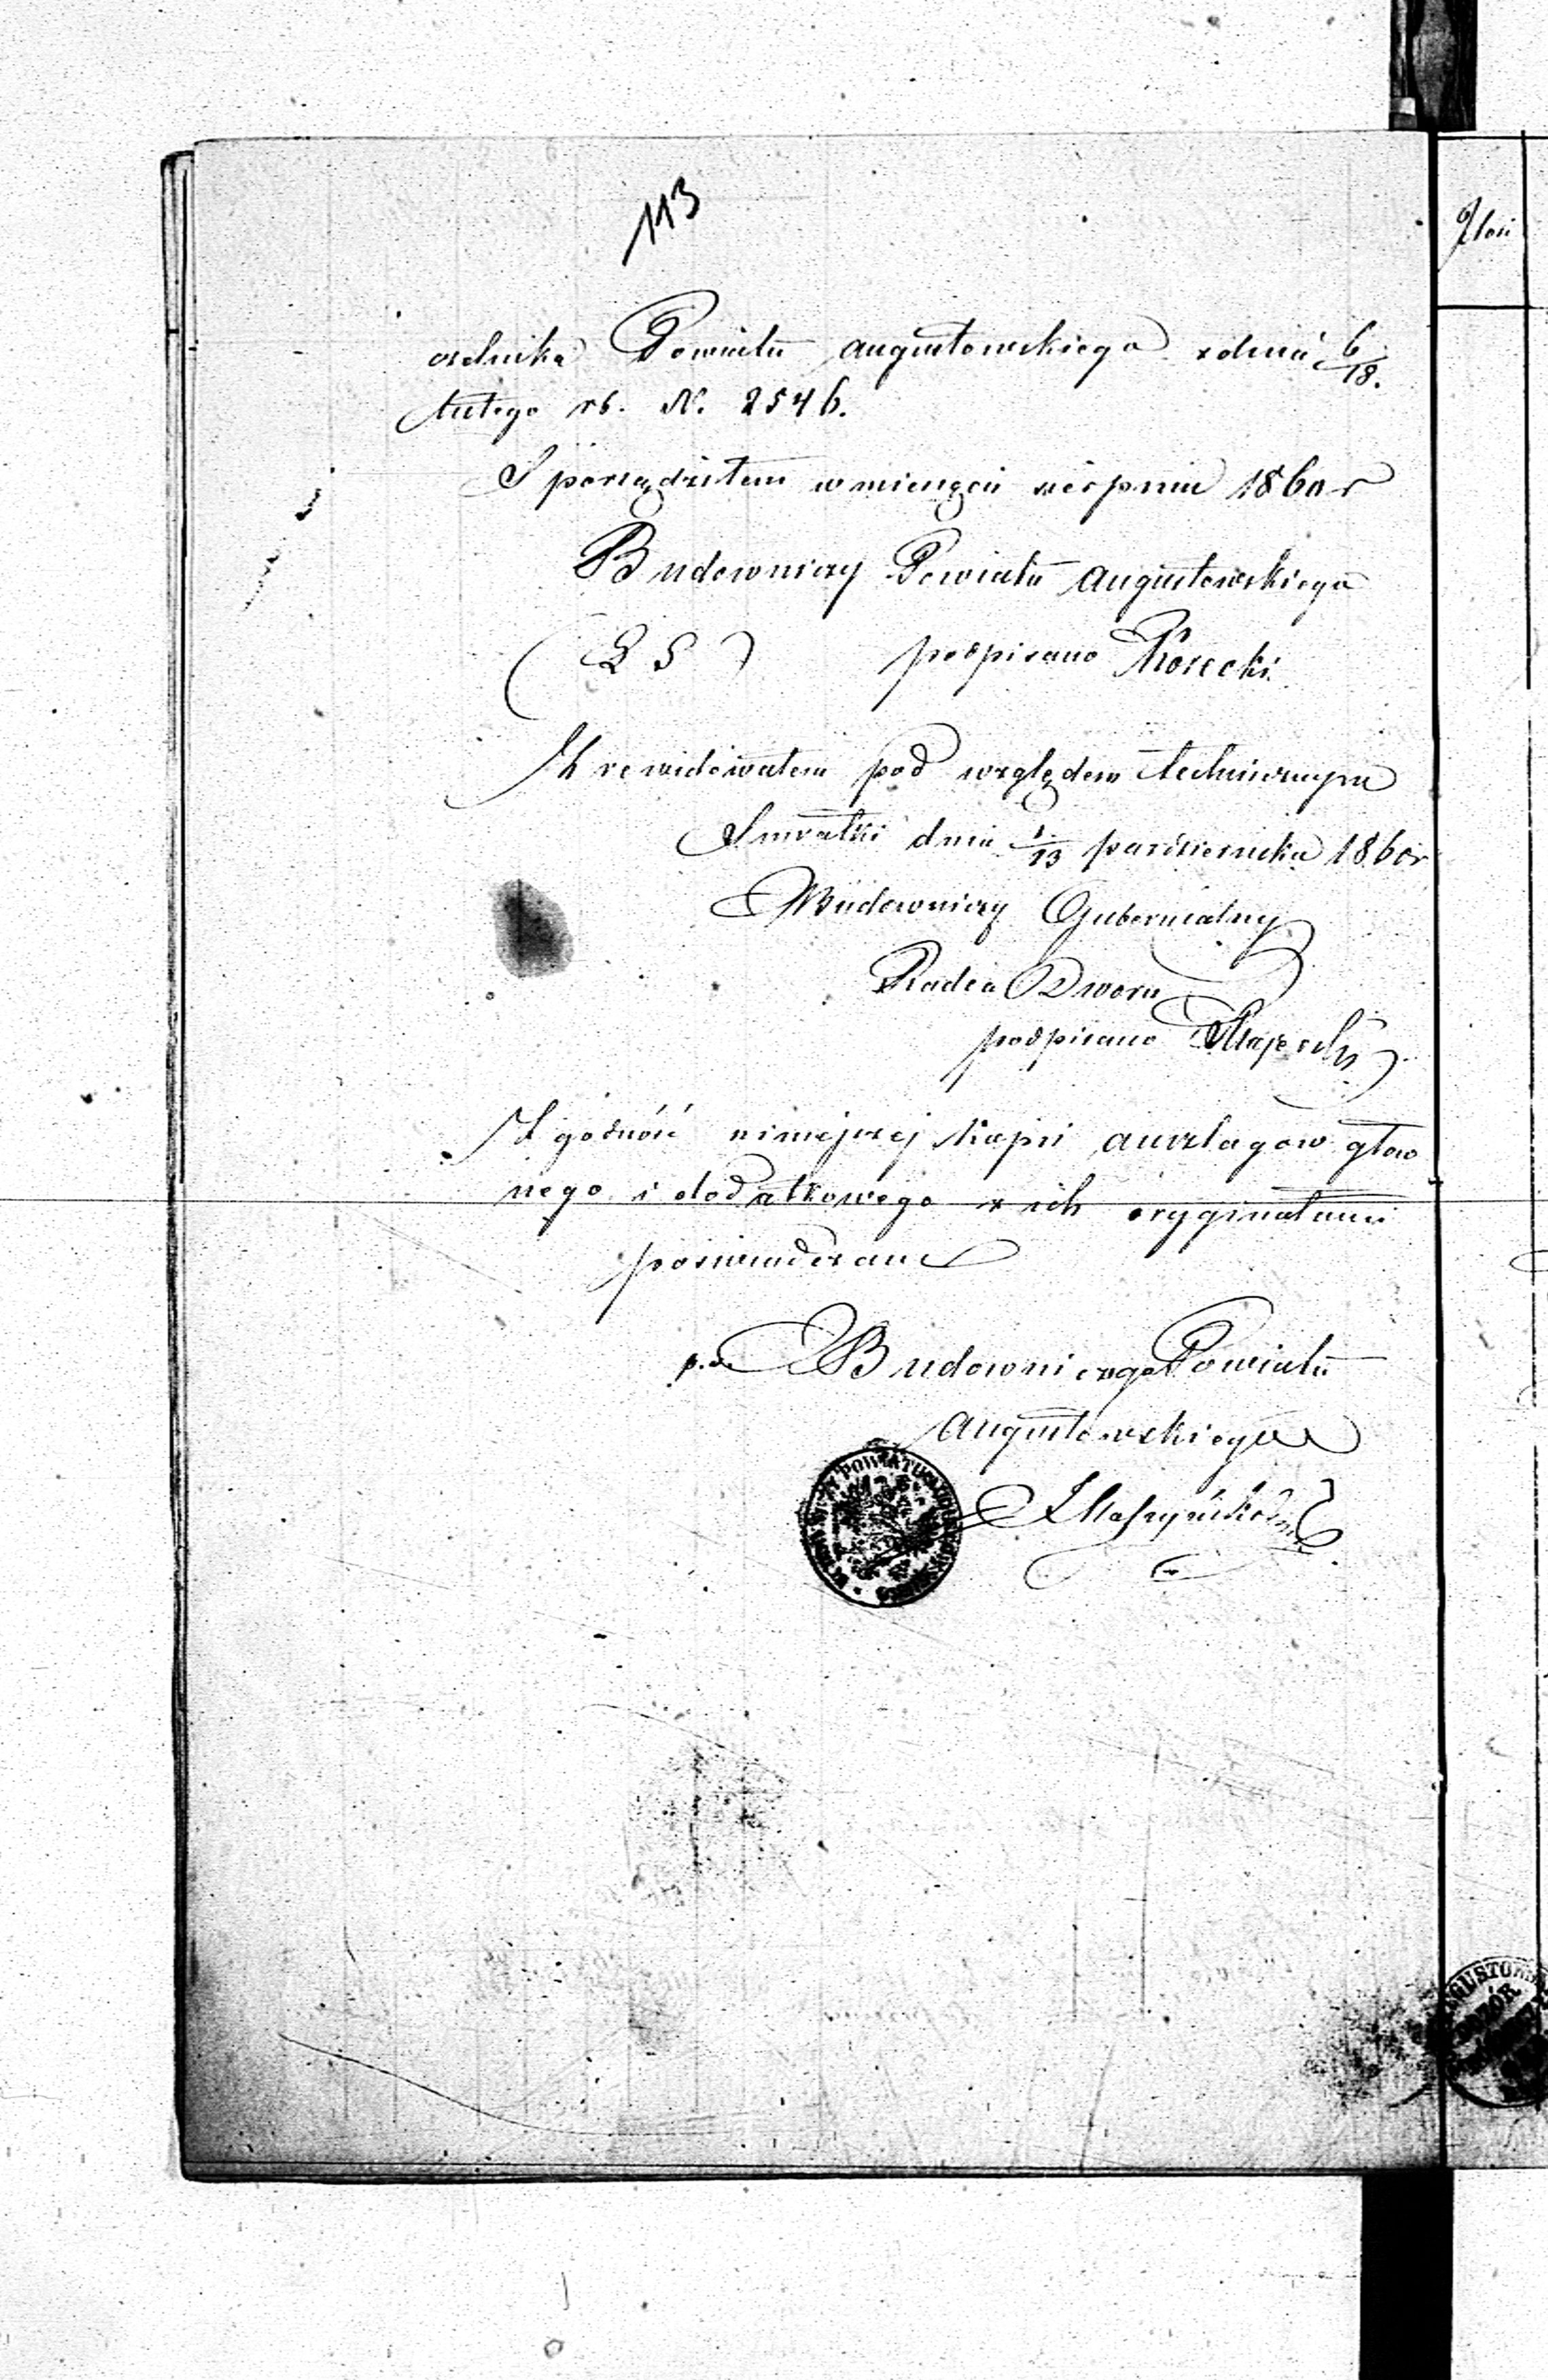 113
czelnika Powiatu Augustowskiego z dnia 6/18.
Lutego rb. N. 2546.
Sporządziłem w miesiącu sierpniu 1860 r
Budowniczy Powiatu Augustowskiego
(L S) podpisano
Zrewidowałem pod względem technicznym
Suwałki dnia 1/13 października 1860 r
Budowniczy Gubernialny
Radca Dworu
podpisano
Zgodność niniejszej kopii anszlagów głów
nego i dodatkowego z ich oryginałami
poświadczam
p.o. Budowniczego Powiatu
Augustowskiego
Ilość